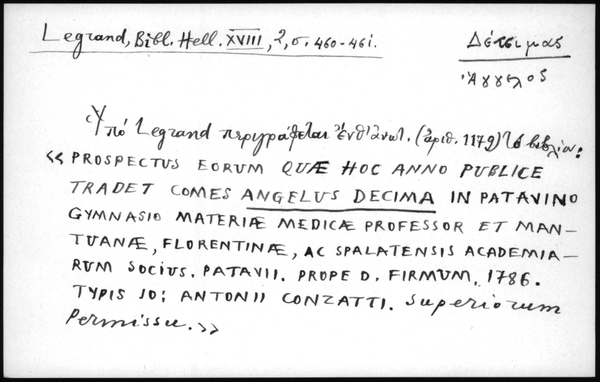 Legrand, Bibl. Hell. XVIII, 2, σ. 460-461.
Δέτσιμας
Ἄγγελος
Ὑπό Legrand περιγράφεται ἐνθ' ἀνωτ. (ἀριθ. 1179) τό βιβλίον:
«PROSPECTUS EORUM QUÆ HOC ANNO PUBLICE
TRADET COMES ANGELUS DECIMA IN PATAVINO
GYMNASIO MATERIÆ MEDICÆ PROFESSOR ET MAN-
TUANÆ, FLORENTINÆ, AC SPALATENSIS ACADEMIA-
RUM SOCIUS. PATAVII. PROPE D. FIRMUM. 1786.
TYPIS IO: ANTONII CONZATTI. Superiorum
Permissu.»